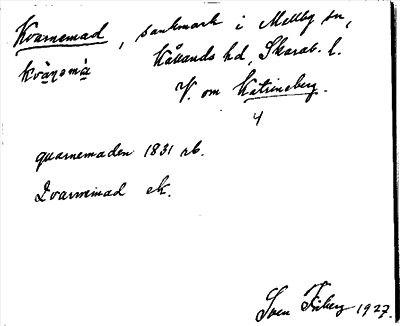 Kvarnemad, sankmark i Mellby sn,
kvàṇəmà Kållands hd, Skarab. l.
V. om Katrineberg.
4
quarnemaden 1831 rb.
Qvarnemad ek.
Sven Fribeg 1927.